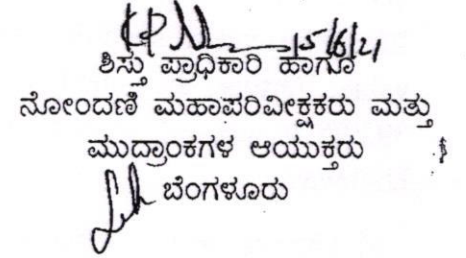 15/6/21
ಶಿಸ್ತು ಪ್ರಾಧಿಕಾರಿ ಹಾಗೂ
ನೋಂದಣಿ ಮಹಾಪರಿವೀಕ್ಷಕರು ಮತ್ತು
ಮುದ್ರಾಂಕಗಳ ಆಯುಕ್ತರು
ಬೆಂಗಳೂರು